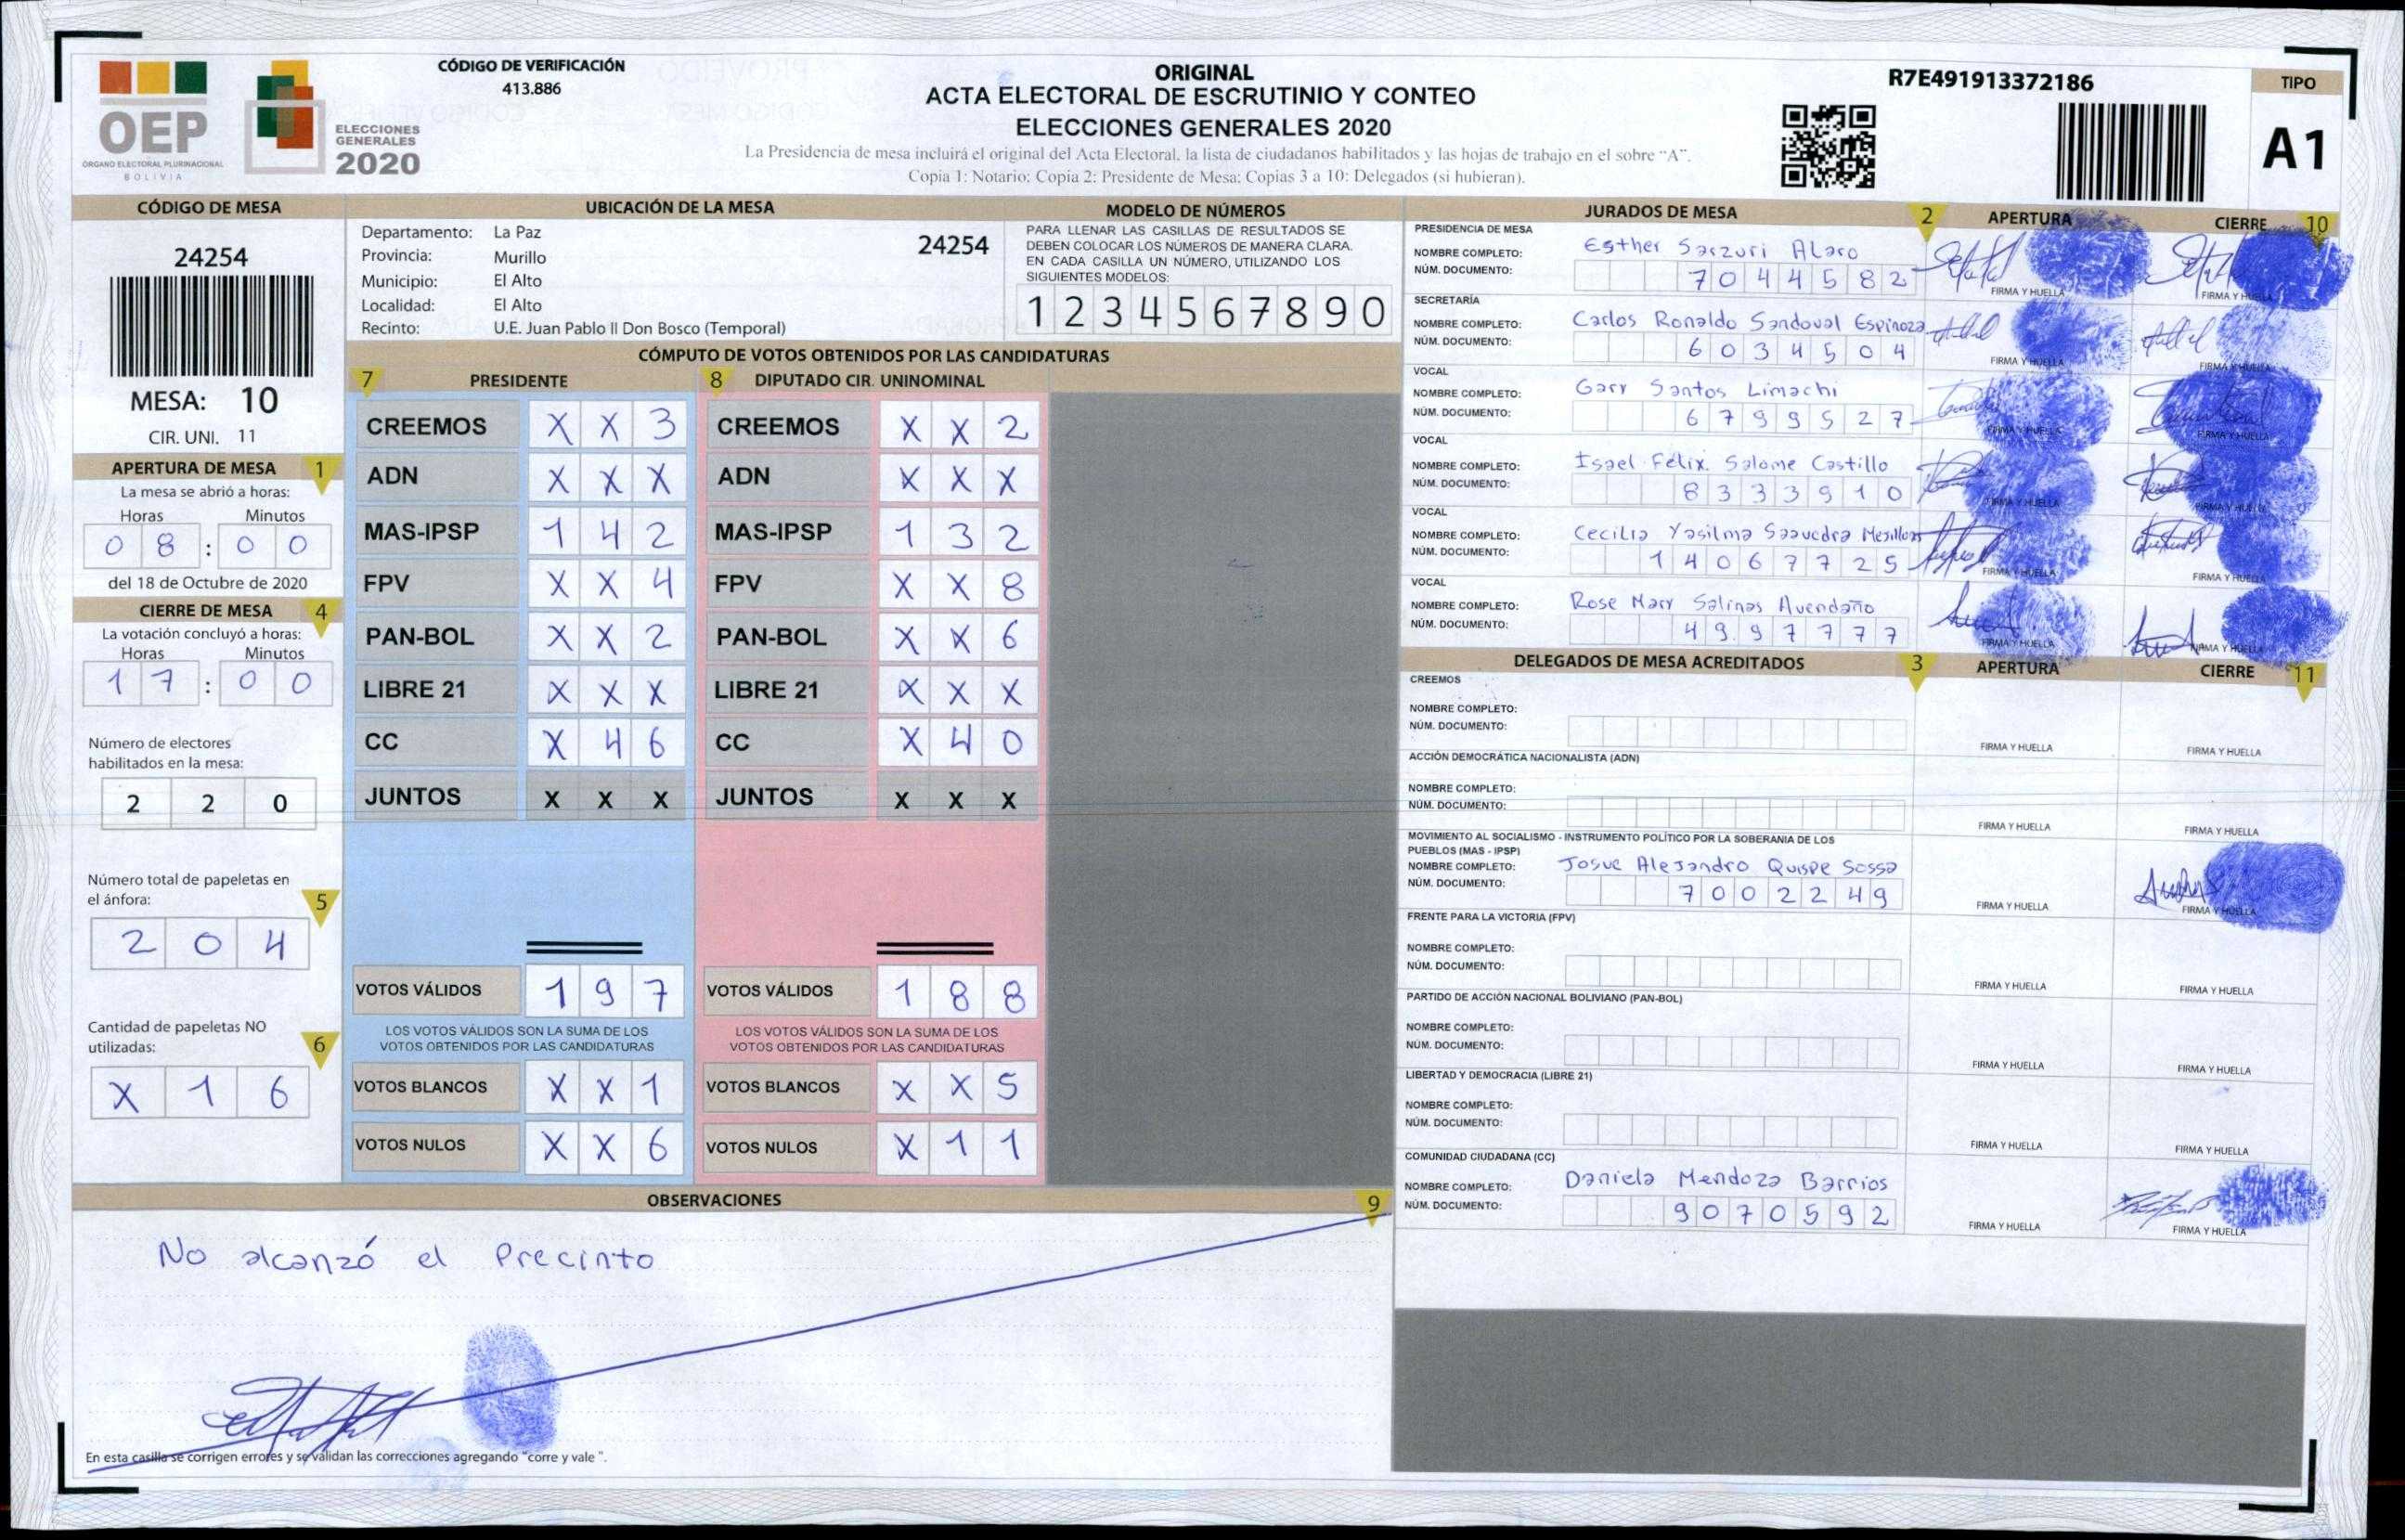 OEP
ÓRGANO ELECTORAL PLURINACIONAL
BOLIVIA
ELECCIONES
GENERALES
2020
CÓDIGO DE VERIFICACIÓN
413.886
ORIGINAL
ACTA ELECTORAL DE ESCRUTINIO Y CONTEO
ELECCIONES GENERALES 2020
La Presidencia de mesa incluirá el original del Acta Electoral, la lista de ciudadanos habilitados y las hojas de trabajo en el sobre "A".
Copia 1: Notario; Copia 2: Presidente de Mesa; Copias 3 a 10: Delegados (si hubieran).
R7E491913372186
TIPO
A1
CÓDIGO DE MESA
24254
MESA: 10
CIR. UNI. 11
APERTURA DE MESA 1
La mesa se abrió a horas:
Horas Minutos
0 8 : 0 0
del 18 de Octubre de 2020
CIERRE DE MESA 4
La votación concluyó a horas:
Horas Minutos
1 7 : 0 0
Número de electores
habilitados en la mesa:
2 2 0
Número total de papeletas en
el ánfora: 5
2 0 4
Cantidad de papeletas NO
utilizadas: 6
X 1 6
UBICACIÓN DE LA MESA
Departamento: La Paz 24254
Provincia: Murillo
Municipio: El Alto
Localidad: El Alto
Recinto: U.E. Juan Pablo II Don Bosco (Temporal)
MODELO DE NÚMEROS
PARA LLENAR LAS CASILLAS DE RESULTADOS SE
DEBEN COLOCAR LOS NÚMEROS DE MANERA CLARA.
EN CADA CASILLA UN NÚMERO, UTILIZANDO LOS
SIGUIENTES MODELOS:
1 2 3 4 5 6 7 8 9 0
CÓMPUTO DE VOTOS OBTENIDOS POR LAS CANDIDATURAS
7 PRESIDENTE 8 DIPUTADO CIR. UNINOMINAL
CREEMOS X X 3 CREEMOS X X 2
ADN X X X ADN X X X
MAS-IPSP 1 4 2 MAS-IPSP 1 3 2
FPV X X 4 FPV X X 8
PAN-BOL X X 2 PAN-BOL X X 6
LIBRE 21 X X X LIBRE 21 X X X
CC X 4 6 CC X 4 0
JUNTOS X X X JUNTOS X X X
VOTOS VÁLIDOS 1 9 7 VOTOS VÁLIDOS 1 8 8
LOS VOTOS VÁLIDOS SON LA SUMA DE LOS LOS VOTOS VÁLIDOS SON LA SUMA DE LOS
VOTOS OBTENIDOS POR LAS CANDIDATURAS VOTOS OBTENIDOS POR LAS CANDIDATURAS
VOTOS BLANCOS X X 1 VOTOS BLANCOS X X 5
VOTOS NULOS X X 6 VOTOS NULOS X 1 1
OBSERVACIONES 9
No alcanzó el Precinto
En esta casilla se corrigen errores y se validan las correcciones agregando "corre y vale ".
JURADOS DE MESA 2 APERTURA CIERRE 10
PRESIDENCIA DE MESA
NOMBRE COMPLETO: Esther Sarzuri Alaro
NÚM. DOCUMENTO: 7 0 4 4 5 8 2
FIRMA Y HUELLA FIRMA Y HUELLA
SECRETARÍA
NOMBRE COMPLETO: Carlos Ronaldo Sandoval Espinoza
NÚM. DOCUMENTO: 6 0 3 4 5 0 4
FIRMA Y HUELLA FIRMA Y HUELLA
VOCAL
NOMBRE COMPLETO: Gary Santos Limachi
NÚM. DOCUMENTO: 6 7 9 9 5 2 7
FIRMA Y HUELLA FIRMA Y HUELLA
VOCAL
NOMBRE COMPLETO: Isael Félix. Salome Castillo
NÚM. DOCUMENTO: 8 3 3 3 9 1 0
FIRMA Y HUELLA FIRMA Y HUELLA
VOCAL
NOMBRE COMPLETO: Cecilia Yasilma Saavedra
NÚM. DOCUMENTO: 1 4 0 6 7 7 2 5
FIRMA Y HUELLA FIRMA Y HUELLA
VOCAL
NOMBRE COMPLETO: Rose Mary Salinas Avendaño
NÚM. DOCUMENTO: 4 9 9 7 7 7 7
FIRMA Y HUELLA FIRMA Y HUELLA
DELEGADOS DE MESA ACREDITADOS 3 APERTURA CIERRE 11
CREEMOS
NOMBRE COMPLETO:
NÚM. DOCUMENTO:
FIRMA Y HUELLA FIRMA Y HUELLA
ACCIÓN DEMOCRÁTICA NACIONALISTA (ADN)
NOMBRE COMPLETO:
NÚM. DOCUMENTO:
FIRMA Y HUELLA FIRMA Y HUELLA
MOVIMIENTO AL SOCIALISMO - INSTRUMENTO POLÍTICO POR LA SOBERANIA DE LOS
PUEBLOS (MAS - IPSP)
NOMBRE COMPLETO: Josue Alejandro Quispe Sossa
NÚM. DOCUMENTO: 7 0 0 2 2 4 9
FIRMA Y HUELLA FIRMA Y HUELLA
FRENTE PARA LA VICTORIA (FPV)
NOMBRE COMPLETO:
NÚM. DOCUMENTO:
FIRMA Y HUELLA FIRMA Y HUELLA
PARTIDO DE ACCIÓN NACIONAL BOLIVIANO (PAN-BOL)
NOMBRE COMPLETO:
NÚM. DOCUMENTO:
FIRMA Y HUELLA FIRMA Y HUELLA
LIBERTAD Y DEMOCRACIA (LIBRE 21)
NOMBRE COMPLETO:
NÚM. DOCUMENTO:
FIRMA Y HUELLA FIRMA Y HUELLA
COMUNIDAD CIUDADANA (CC)
NOMBRE COMPLETO: Daniela Mendoza Barrios
NÚM. DOCUMENTO: 9 0 7 0 5 9 2
FIRMA Y HUELLA FIRMA Y HUELLA